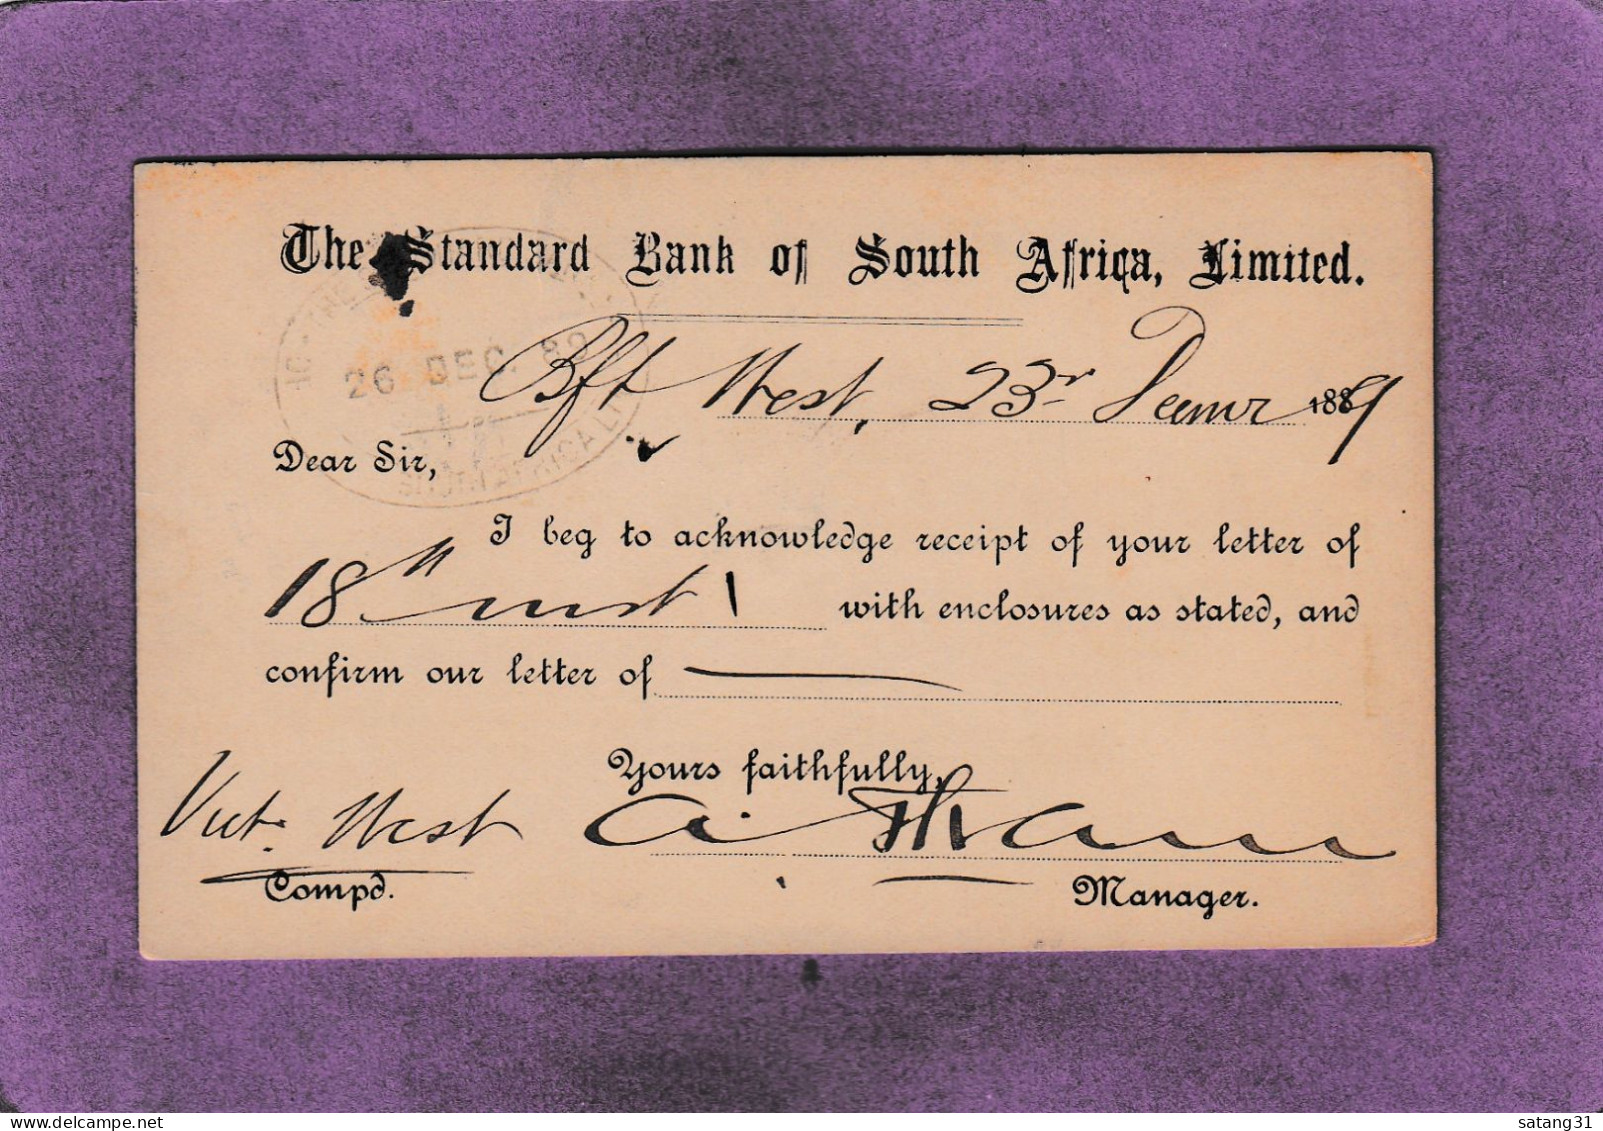 The Standard Bank of South Africa, Limited.
26 DEC. 89
Bft West, 23r Decmr 1889
Dear Sir,
I beg to acknowledge receipt of your letter of
18th inst with enclosures as stated, and
confirm our letter of
Yours faithfully,
Vict. West
Compd.
Manager.
www.delcampe.net
satang31